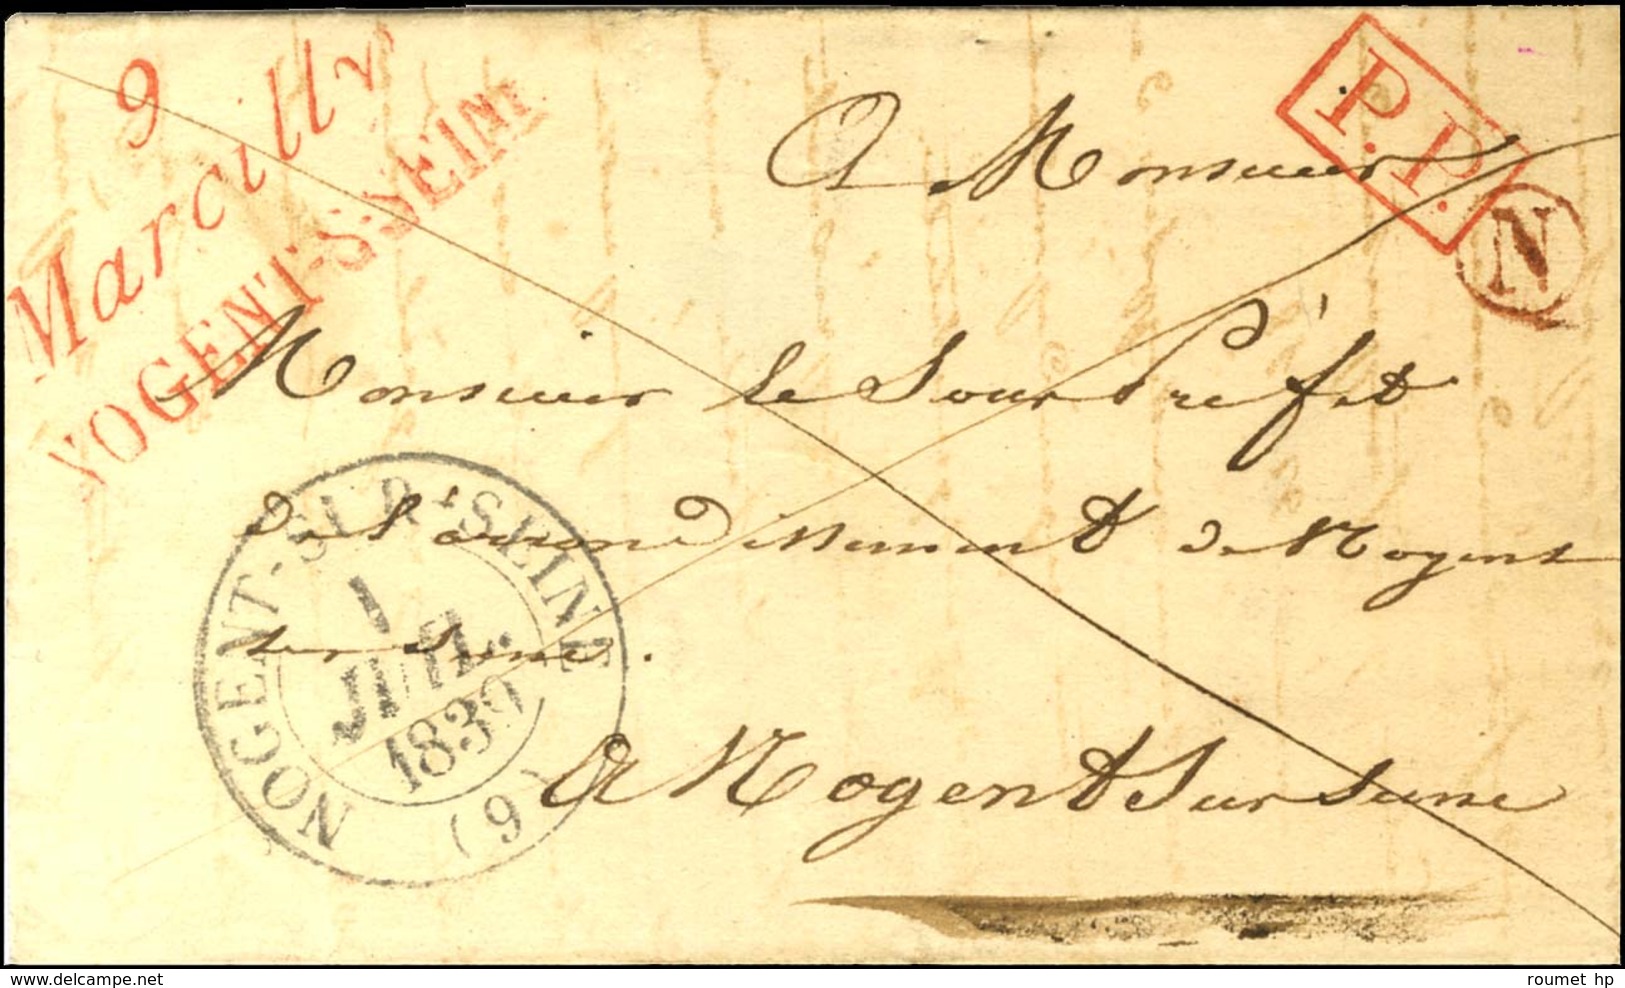 9
Marcilly
NOGENT-S-SEINE
P.P.
N
A Monsieur
Monsieur le Sous Préfet
de l'arrondissement de Nogent
sur Seine.
NOGENT-SUR-SEINE
1
JUIL.
1839
(9)
A Nogent Sur Seine
roumet hp